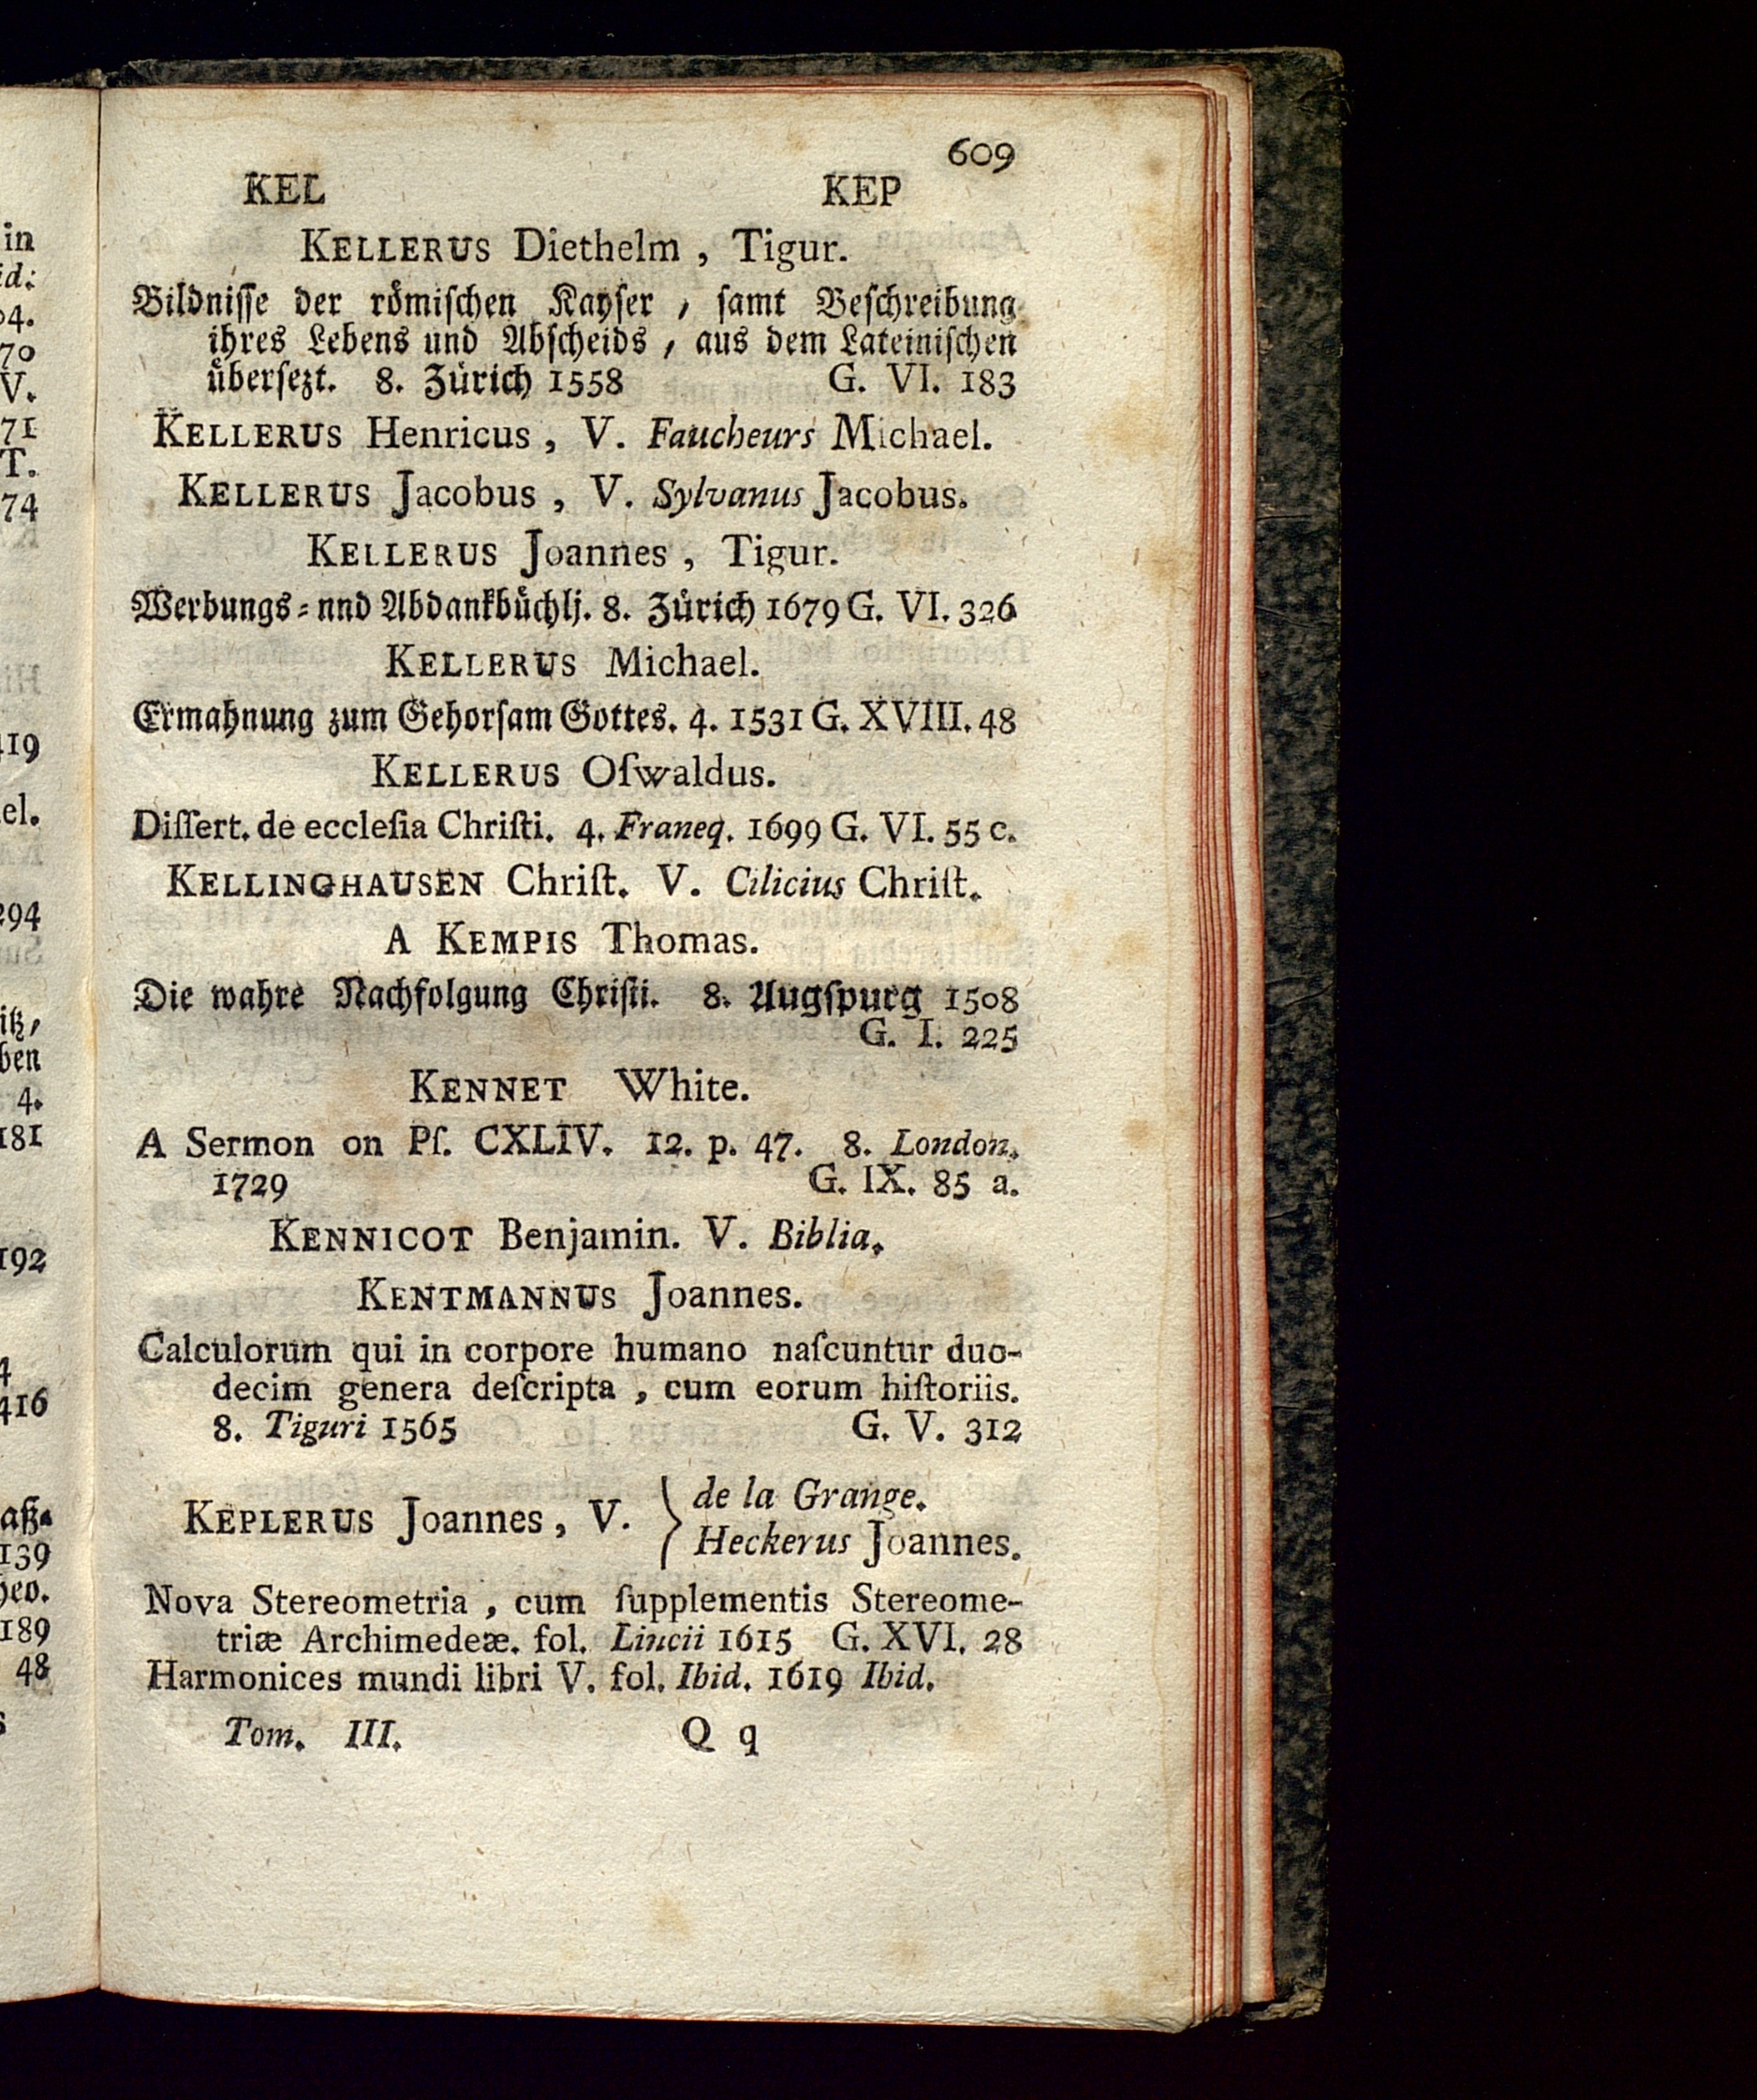 in
id:
04.
70
V.
71
T.
74
419
el.
294
itz,
ben
4.
181
192
4
416
aß-
139
heo.
189
48
s
609
KEL KEP
KELLERUS Diethelm, Tigur.
Bildnisse der römischen Kayser, samt Beschreibung
ihres Lebens und Abscheids, aus dem Lateinischen
übersezt. 8. Zürich 1558 G. VI. 183
KELLERUS Henricus, V. Faucheurs Michael.
KELLERUS Jacobus, V. Sylvanus Jacobus.
KELLERUS Joannes, Tigur.
Werbungs- nnd Abdankbüchlj. 8. Zürich 1679 G. VI. 326
KELLERUS Michael.
Ermahnung zum Gehorsam Gottes. 4. 1531 G. XVIII. 48
KELLERUS Oſwaldus.
Diſſert. de eccleſia Chriſti. 4. Franeq. 1699 G. VI. 55 c.
KELLINGHAUSEN Chriſt. V. Cilicius Chriſt.
A KEMPIS Thomas.
Die wahre Nachfolgung Christi. 8. Augspurg 1508
G. I. 225
KENNET White.
A Sermon on Pſ. CXLIV. 12. p. 47. 8. London.
1729 G. IX. 85 a.
KENNICOT Benjamin. V. Biblia.
KENTMANNUS Joannes.
Calculorum qui in corpore humano naſcuntur duo-
decim genera deſcripta, cum eorum hiſtoriis.
8. Tiguri 1565 G. V. 312
KEPLERUS Joannes, V. } de la Grange.
Heckerus Joannes.
Nova Stereometria, cum ſupplementis Stereome-
triæ Archimedeæ. fol. Lincii 1615 G. XVI. 28
Harmonices mundi libri V. fol. Ibid. 1619 Ibid.
Tom. III. Q q